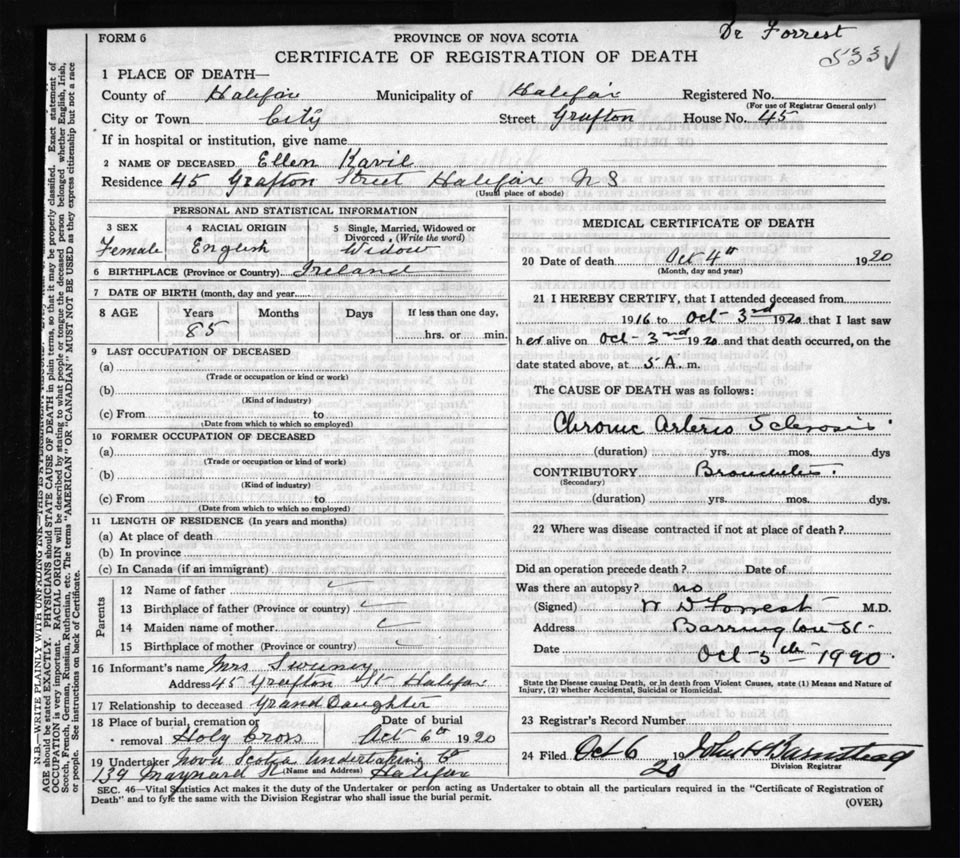 Dr Forrest
FORM 6
PROVINCE OF NOVA SCOTIA
533 ✓
CERTIFICATE OF REGISTRATION OF DEATH
1 PLACE OF DEATH—
County of Halifax Municipality of Halifax Registered No.
(For use of Registrar General only)
City or Town City Street Grafton House No. 45
If in hospital or institution, give name
2 NAME OF DECEASED Ellen Kavil
Residence 45 Grafton Street Halifax N S
(Usual place of abode)
PERSONAL AND STATISTICAL INFORMATION
3 SEX 4 RACIAL ORIGIN 5 Single, Married, Widowed or Divorced. (Write the word)
Female English Widow
6 BIRTHPLACE (Province or Country) Ireland
7 DATE OF BIRTH (month, day and year)
8 AGE Years Months Days If less than one day,
85 hrs. or min.
9 LAST OCCUPATION OF DECEASED
(a)
(Trade or occupation or kind or work)
(b)
(Kind of industry)
(c) From to
(Date from which to which so employed)
10 FORMER OCCUPATION OF DECEASED
(a)
(Trade or occupation or kind or work)
(b)
(Kind of industry)
(c) From to
(Date from which to which so employed)
11 LENGTH OF RESIDENCE (In years and months)
(a) At place of death
(b) In province
(c) In Canada (if an immigrant)
Parents
12 Name of father
13 Birthplace of father (Province or country)
14 Maiden name of mother
15 Birthplace of mother (Province or country)
16 Informant's name Mrs Sweeney
Address 45 Grafton St Halifax
17 Relationship to deceased Grand Daughter
18 Place of burial, cremation or Date of burial
removal Holy Cross Oct 6th 1920
19 Undertaker Nova Scotia Undertaking Co
139 Maynard St (Name and Address) Halifax
MEDICAL CERTIFICATE OF DEATH
20 Date of death Oct 4th 1920
(Month, day and year)
21 I HEREBY CERTIFY, that I attended deceased from
1916 to Oct-3rd 1920 that I last saw
her alive on Oct-3rd 1920 and that death occurred, on the
date stated above, at 5 A. m.
The CAUSE OF DEATH was as follows:
Chronic Arterio Sclerosis
(duration) yrs. mos. dys
CONTRIBUTORY
(Secondary)
(duration) yrs. mos. dys.
22 Where was disease contracted if not at place of death?
Did an operation precede death? Date of
Was there an autopsy? no
(Signed) W D Forrest M.D.
Address Barrington St.
Date Oct-5th 1920.
State the Disease causing Death, or in death from Violent Causes, state (1) Means and Nature of
Injury, (2) whether Accidental, Suicidal or Homicidal.
23 Registrar's Record Number
24 Filed Oct 6 1920
Division Registrar
SEC. 46—Vital Statistics Act makes it the duty of the Undertaker or person acting as Undertaker to obtain all the particulars required in the "Certificate of Registration of
Death" and to fyle the same with the Division Registrar who shall issue the burial permit.
(OVER)
AGE should be stated EXACTLY. PHYSICIANS should STATE CAUSE OF DEATH in plain terms, so that it may be properly classified. Exact statement of
OCCUPATION is very important. RACIAL ORIGIN will be described by stating to what people or tongue the deceased person belonged whether English, Irish,
Scotch, French, German, Russian, Ruthenian, etc. The terms "AMERICAN" OR "CANADIAN" MUST NOT BE USED as they express citizenship but not a race
or people. See instructions on back of Certificate.